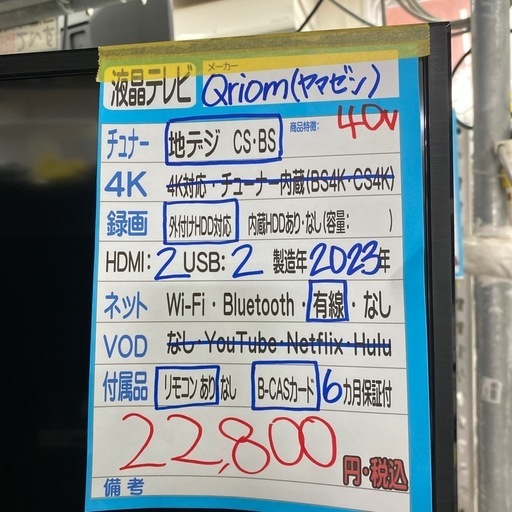 液晶テレビ メーカー Qriom(ヤマゼン)
チュナー 地デジ CS・BS 商品特徴: 40v
4K 4K対応・チューナー内蔵(BS4K・CS4K)
録画 外付けHDD対応 内蔵HDDあり・なし(容量: )
HDMI:2 USB:2 製造年2023年
ネット Wi-Fi・Bluetooth・有線・なし
VOD なし・YouTube・Netflix・Hulu
付属品 リモコンあり なし B-CASカード 6カ月保証付
22,800 円・税込
備考